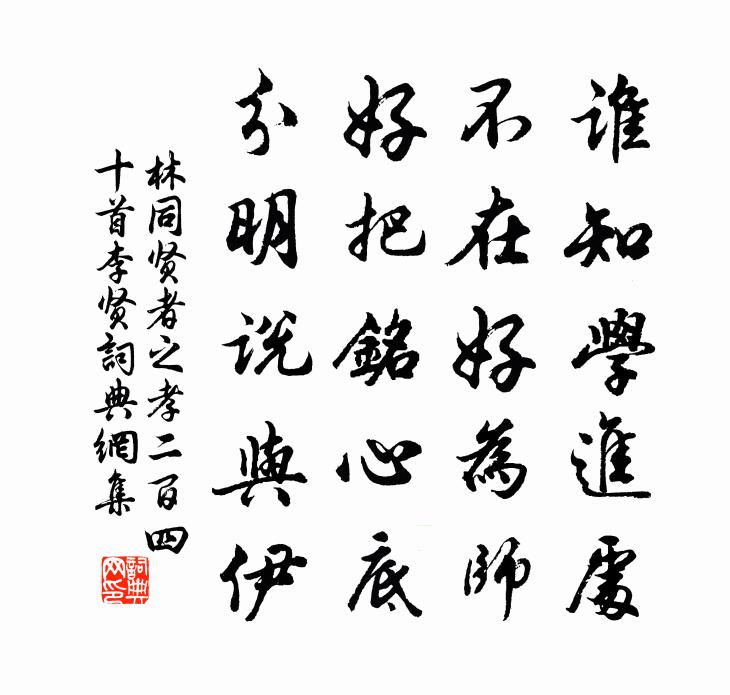 誰知學進處
不在好為師
好把銘心底
分明説與伊
林同贤者之孝二百四
十首李贤詞典網集
詞典
网印